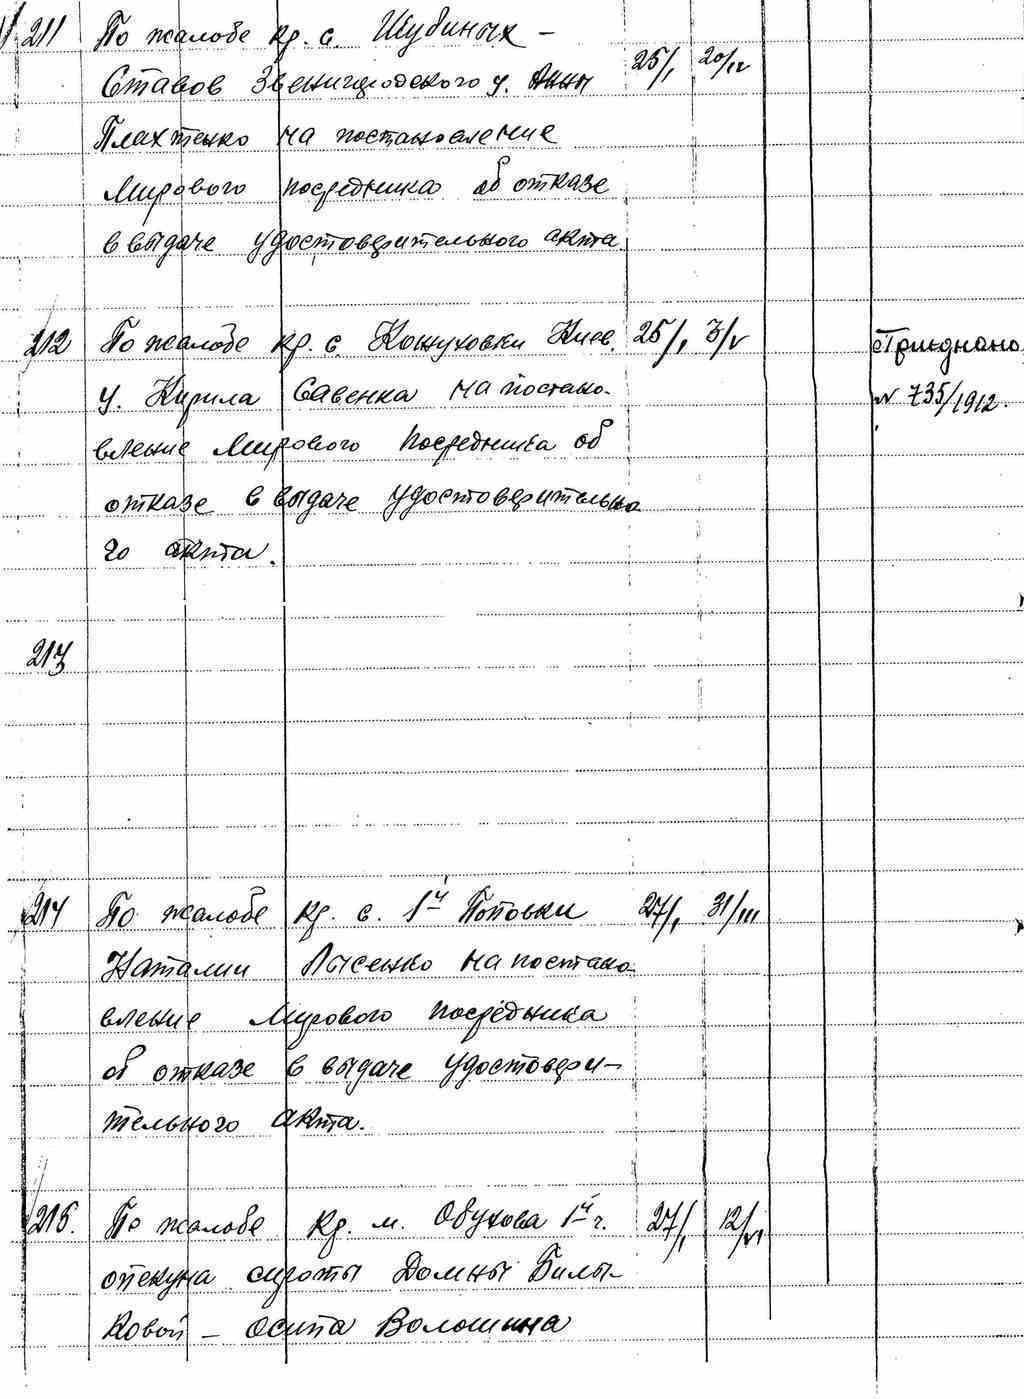 211 По жалобе кр. с. Шубиных -
Ставов Звенигородского у. Анны 25/I 20/IV
Плахтенко на постановление
Мирового посредника об отказе
в выдаче удостоверительного акта.
212 По жалобе кр. с. Кожуховки Киев. 25/I 3/V Приєднано
у. Кирила Савенка на постано- № 735/1912.
вление Мирового Посредника об
отказе в выдаче удостоверительно
го акта.
213
214 По жалобе кр. с. 1й Поповки 27/I 31/III
Наталии Лысенко на постано-
вление Мирового посредника
об отказе в выдаче удостовери-
тельного акта.
215. По жалобе кр. м. Обухова 1й ч. 27/I 12/VI
опекуна сироты Домны Билы-
ковой - Осипа Волошина